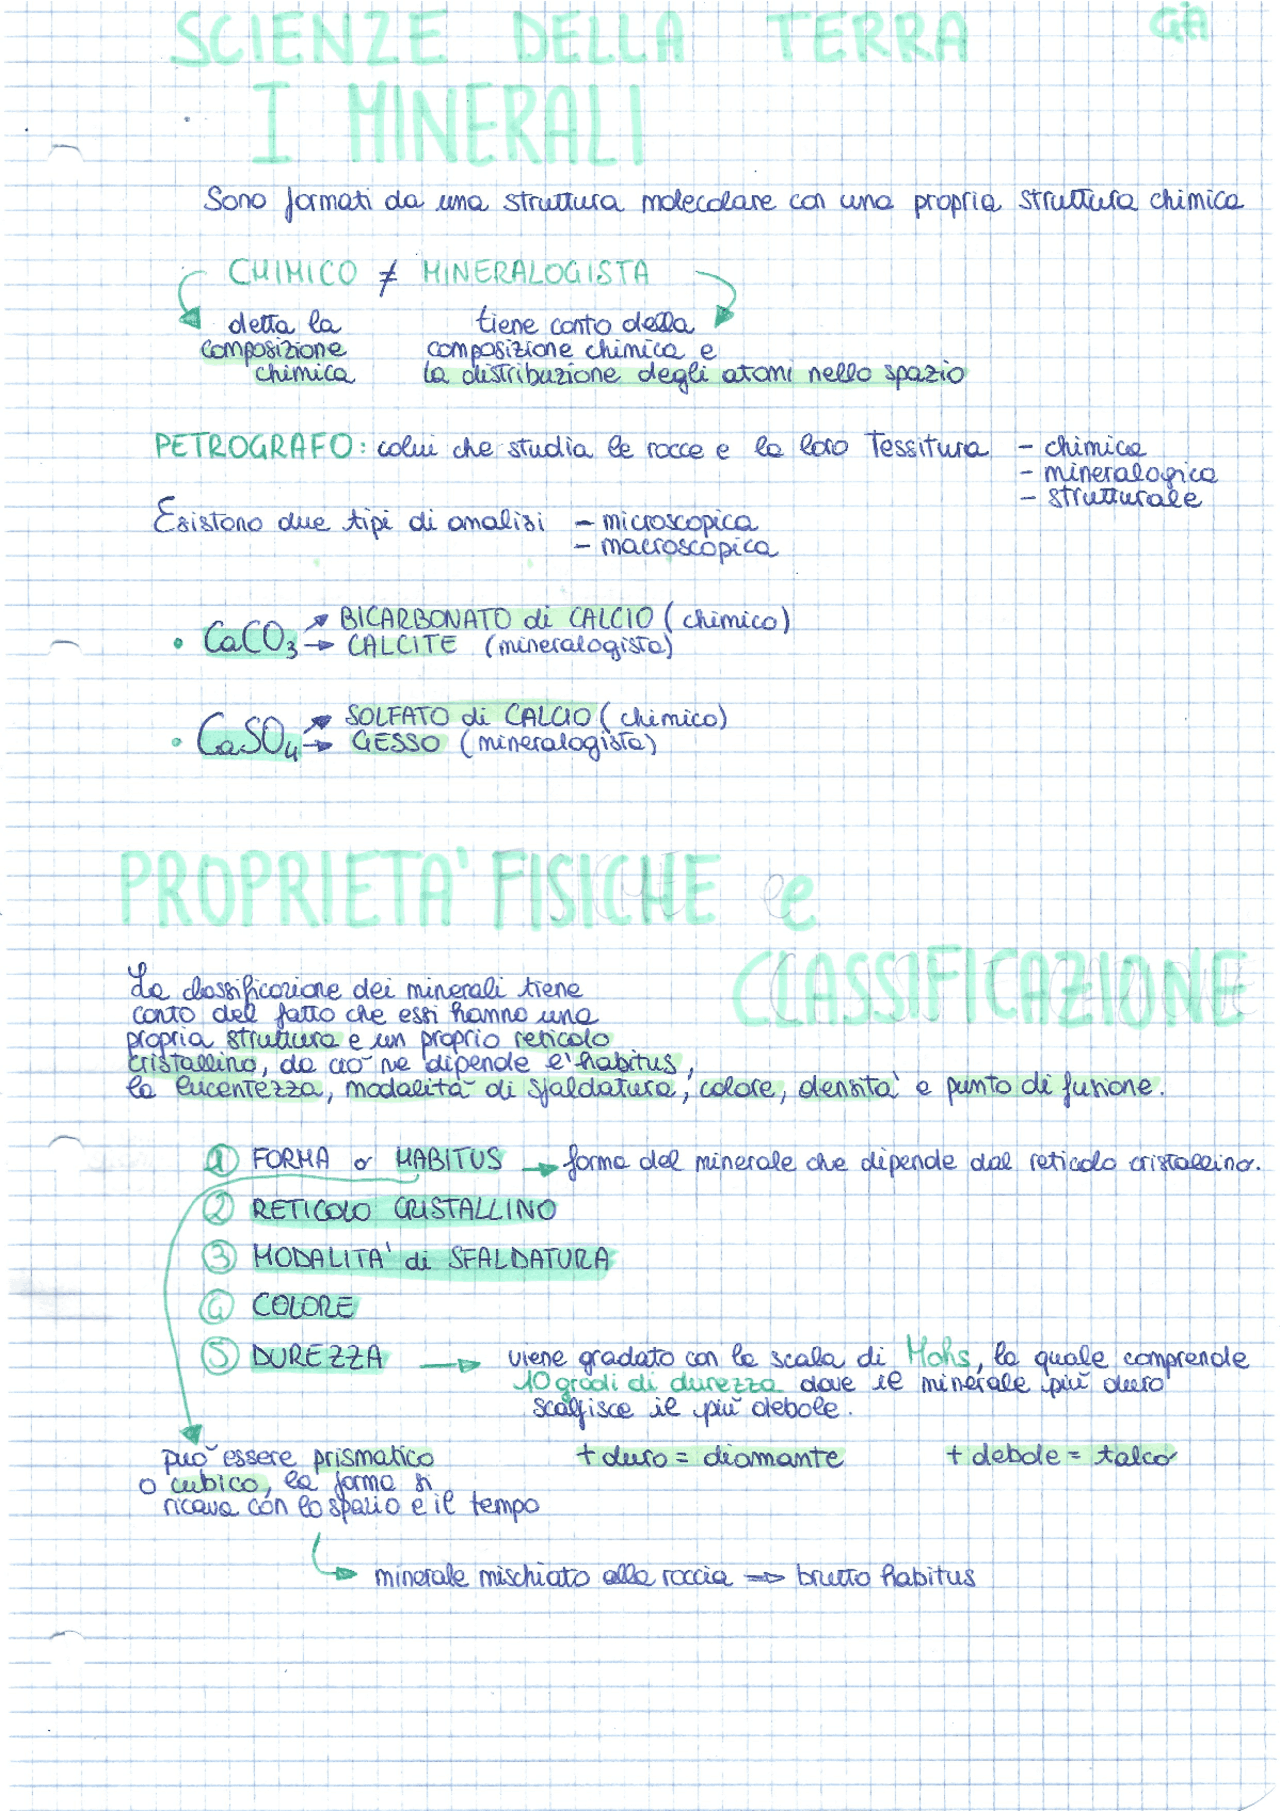 SCIENZE DELLA TERRA GA
I MINERALI
Sono formati da una struttura molecolare con una propria struttura chimica
CHIMICO ≠ MINERALOGISTA
detta la tiene conto della
composizione composizione chimica e
chimica la distribuzione degli atomi nello spazio
PETROGRAFO: colui che studia le rocce e la loro tessitura - chimica
- mineralogica
- strutturale
Esistono due tipi di analisi - microscopica
- macroscopica
→ BICARBONATO di CALCIO (chimico)
• CaCO3 → CALCITE (mineralogista)
→ SOLFATO di CALCIO (chimico)
• CaSO4 → GESSO (mineralogista)
PROPRIETA' FISICHE e
CLASSIFICAZIONE
La classificazione dei minerali tiene
conto del fatto che essi hanno una
propria struttura e un proprio reticolo
cristallino, da ciò ne dipende l'habitus,
la lucentezza, modalità di sfaldatura, colore, densità e punto di fusione.
① FORMA o HABITUS → forma del minerale che dipende dal reticolo cristallino.
② RETICOLO CRISTALLINO
③ MODALITA' di SFALDATURA
④ COLORE
⑤ DUREZZA → viene gradato con la scala di Mohs, la quale comprende
10 gradi di durezza dove il minerale più duro
scalfisce il più debole.
può essere prismatico + duro = diamante + debole = talco
o cubico, la forma si
ricava con lo spazio e il tempo
→ minerale mischiato alla roccia → brutto habitus